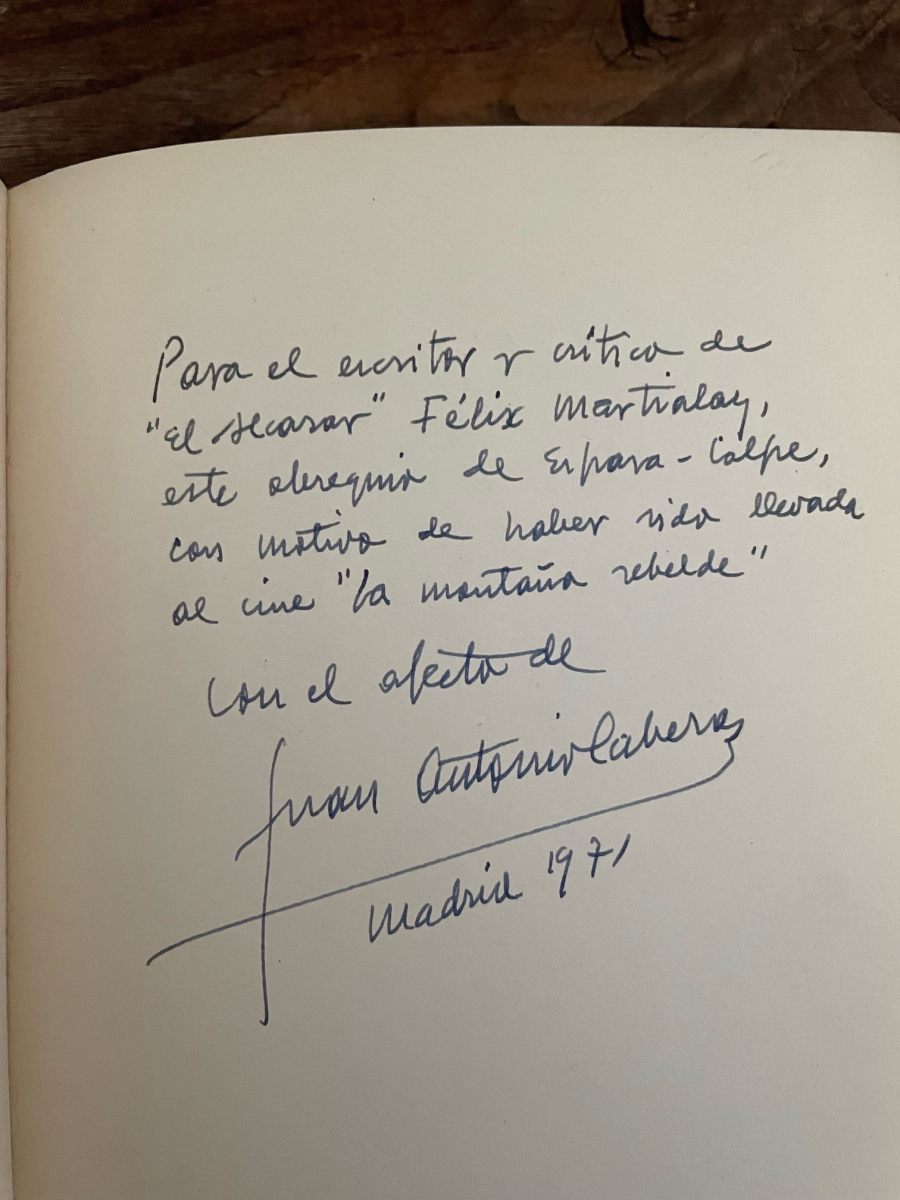 Para el escritor y crítico de
"El Alcazar" Félix Martialay,
este obsequio de Espasa-Calpe,
con motivo de haber sido llevada
al cine "La montaña rebelde"
Con el afecto de
Juan Antonio Cabezas
Madrid 1971